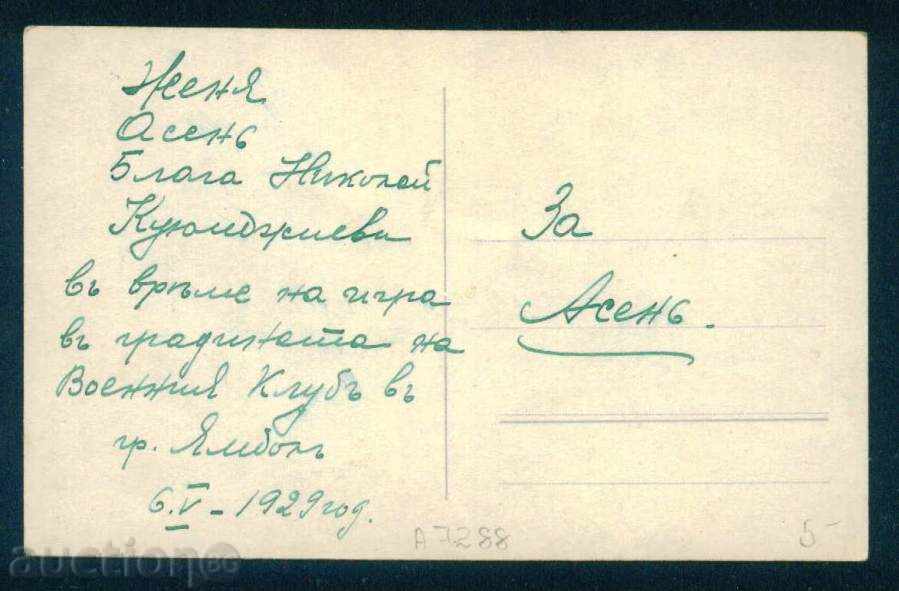 Женя
Асенъ
Блага Николай
Куюмджиеви
въ време на игра
въ градината на
Военния Клубъ въ
гр. Ямболъ
6.V – 1929 год.
За
Асенъ.
A7288
5-
auction.bg